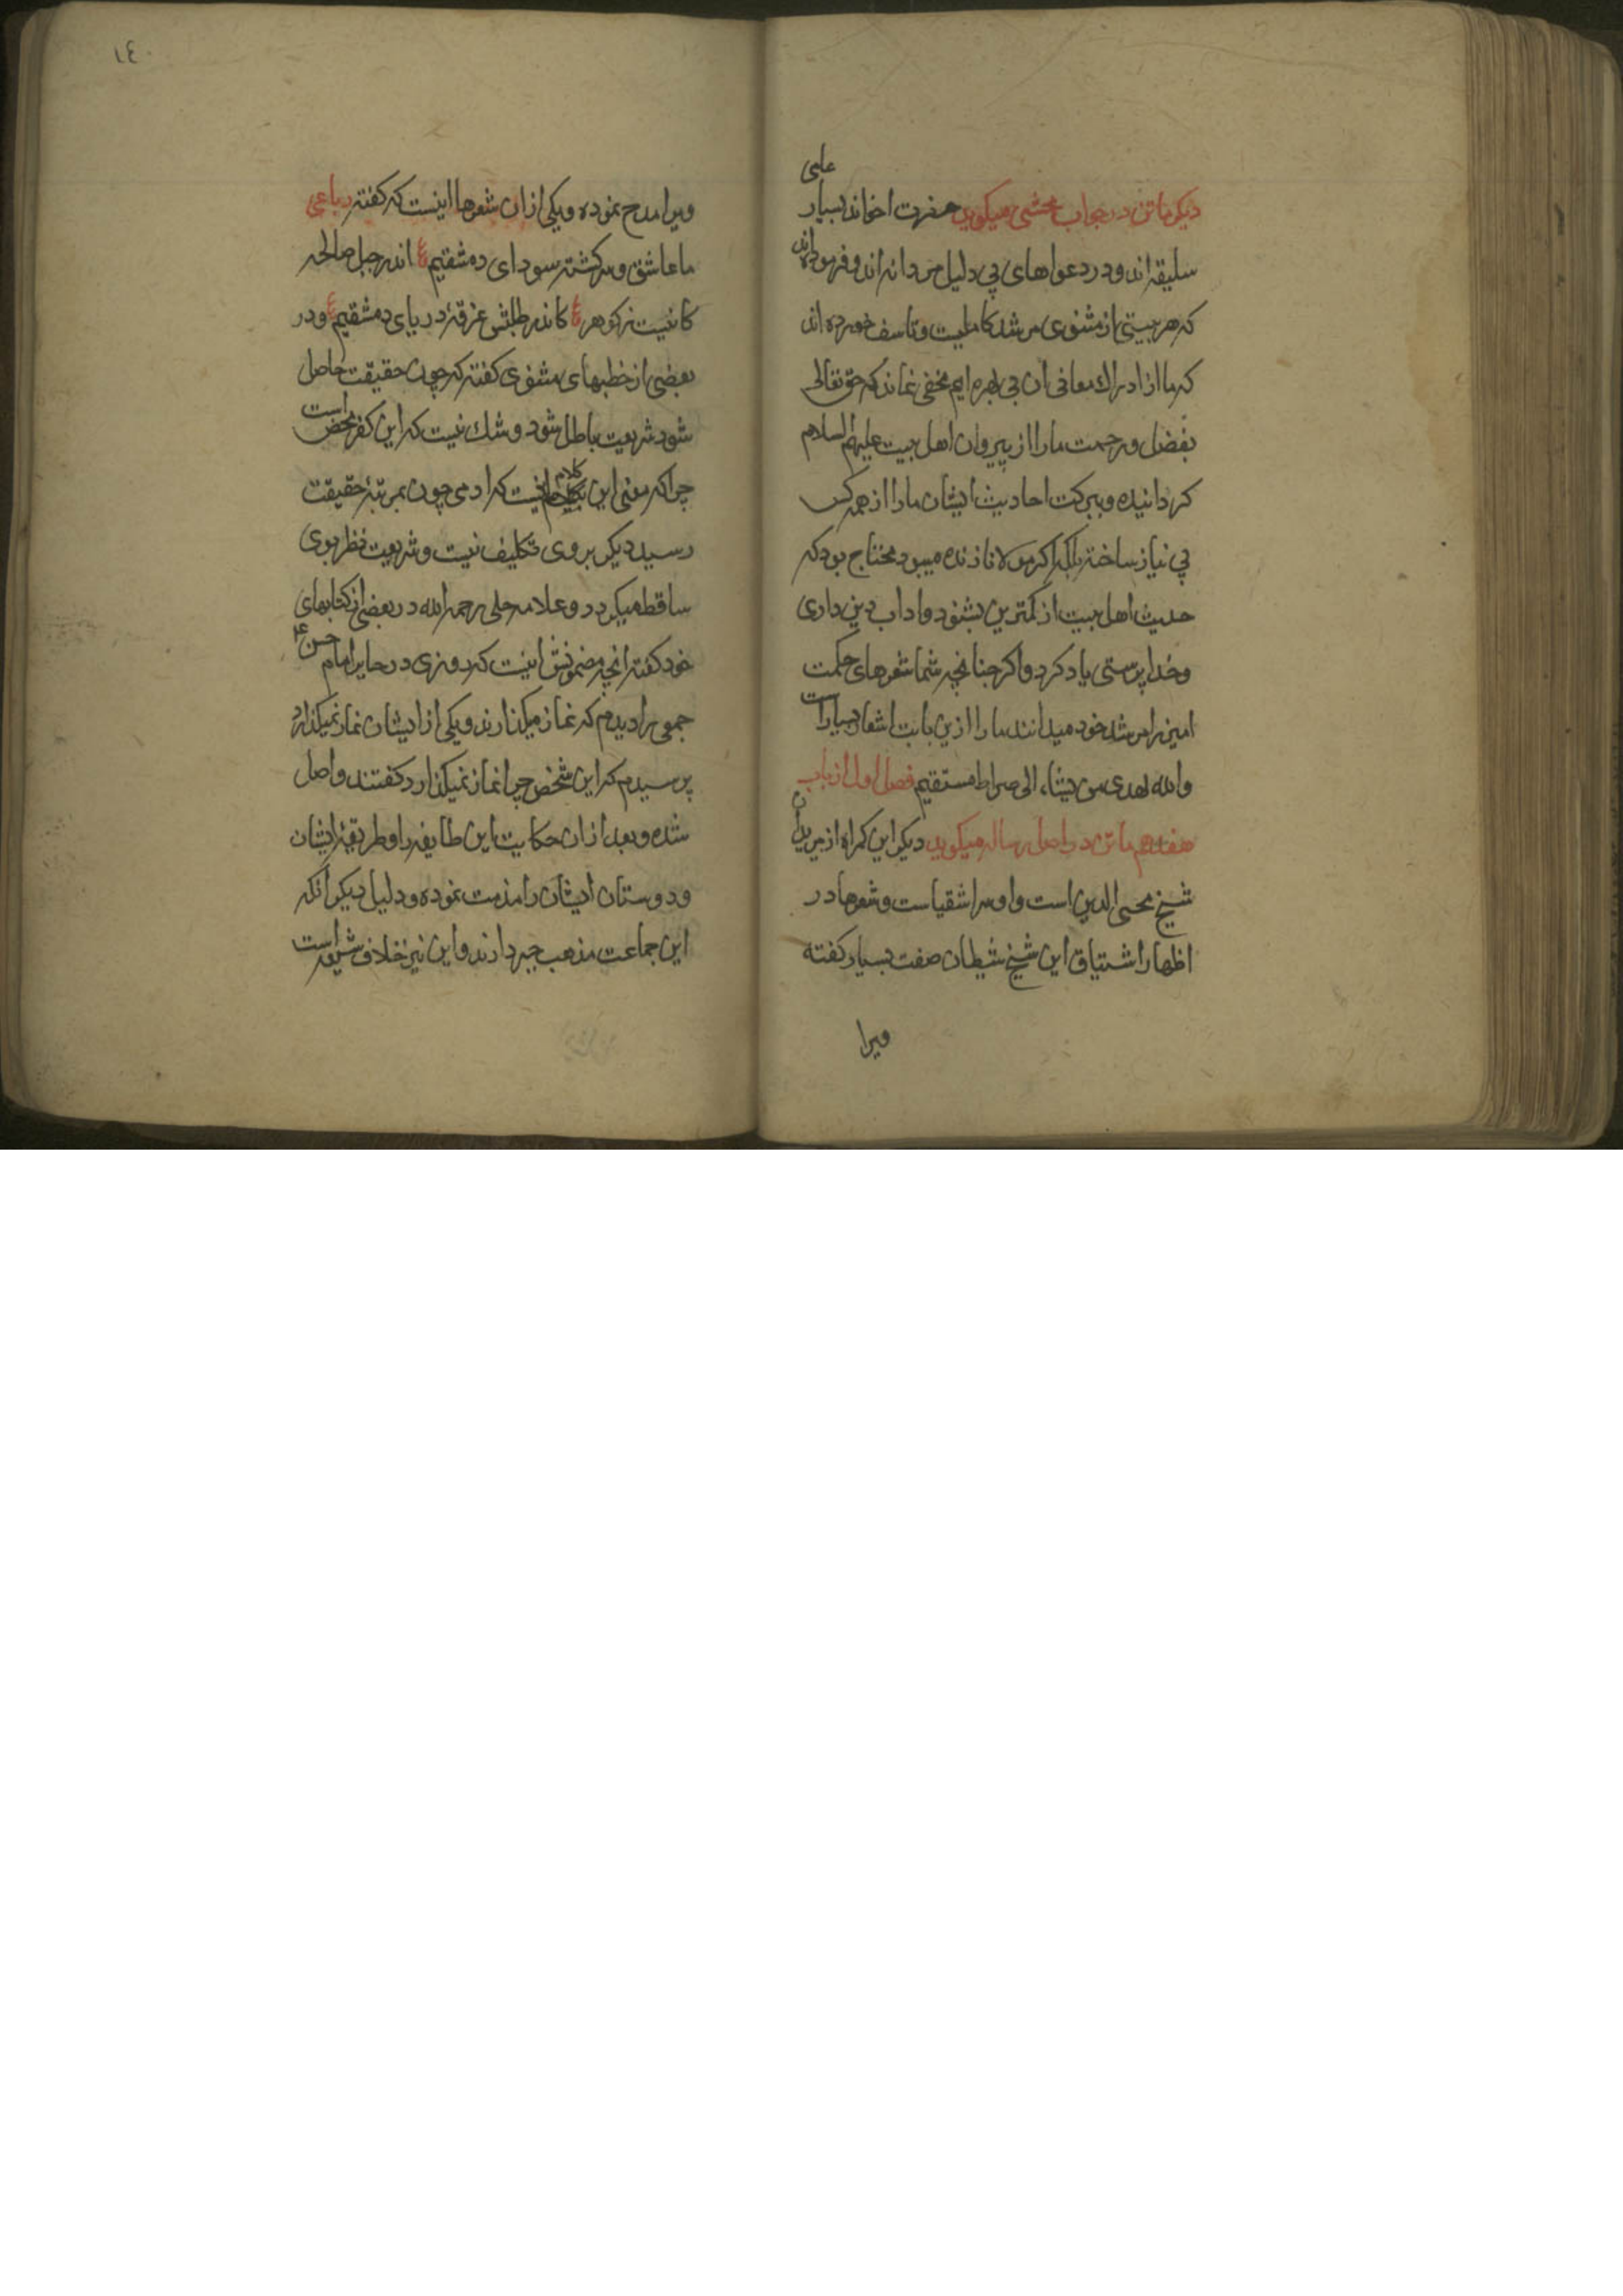 علمی
دیکر ماتن در جواب محشی میکوید حضرت اخواند بسیار
سلیقه اند و در دعواهای بی دلیل مردانه اند و فرموده اند
که هر بیتی از مثنوی مرشد کاملیست و تاسف خورده اند
که ما از ادراك معانی ان بی بهره ایم مخفی نماند که حق تعالی
بفضل و رحمت ما را از پیروان اهل بیت علیهم السلام
کردانیده و ببرکت احادیث ایشان ما را از همه کس
بی نیاز ساخته بلکه اکر مولانا زنده میبود محتاج بود که
حدیث اهل بیت از کمترین بشنود و اداب دین داری
و خدا پرستی یاد کرد و اکر چنانچه شما شعرهای حکمت
امیز را مرشد خود میدانند ما را ازین بابت اشعار بسیار است
والله یهدی من یشاء الی صراط مستقیم فصل اول از باب
هفدهم ماتن در اصل رساله میکوید دیکر این کمراه از مریدان
شیخ محیی الدین است و او سر اشقیاست و شعرها در
اظهار اشتیاق این شیخ شیطان صفت بسیار کفته
ویرا
١٤٠
ویرا مدح نموده و یکی از ان شعرها اینست که کفته رباعی
ما عاشق و سرکشته سودای دمشقیم ع اندر جبل صالحه
کانیست ز کوهر ع کاندر طلبش غرقهٔ دریای دمشقیم ع و در
بعضی از خطبهای مثنوی کفته که چون حقیقت حاصل
شود شریعت باطل شود و شك نیست که این کفر محض است
چرا که معنی این کلام اینست که ادمی چون بمرتبهٔ حقیقت
رسید دیکر بروی تکلیف نیست و شریعت نظر بوی
ساقط میکردد و علامه حلی رحمه الله در بعضی از کتابهای
خود کفته انچه مضمونش اینست که روزی در حایر امام حسین ع
جمعی را دیدم که نماز میکذارند و یکی از ایشان نماز نمیکذارد
پرسیدم که این شخص چرا نماز نمیکذارد کفتند واصل
شده و بعد از ان حکایت این طایفه را و طریقهٔ ایشان
و دوستان ایشان را مذمت نموده و دلیل دیکر انکه
این جماعت مذهب جبر دارند و این نیز خلاف شیعه است